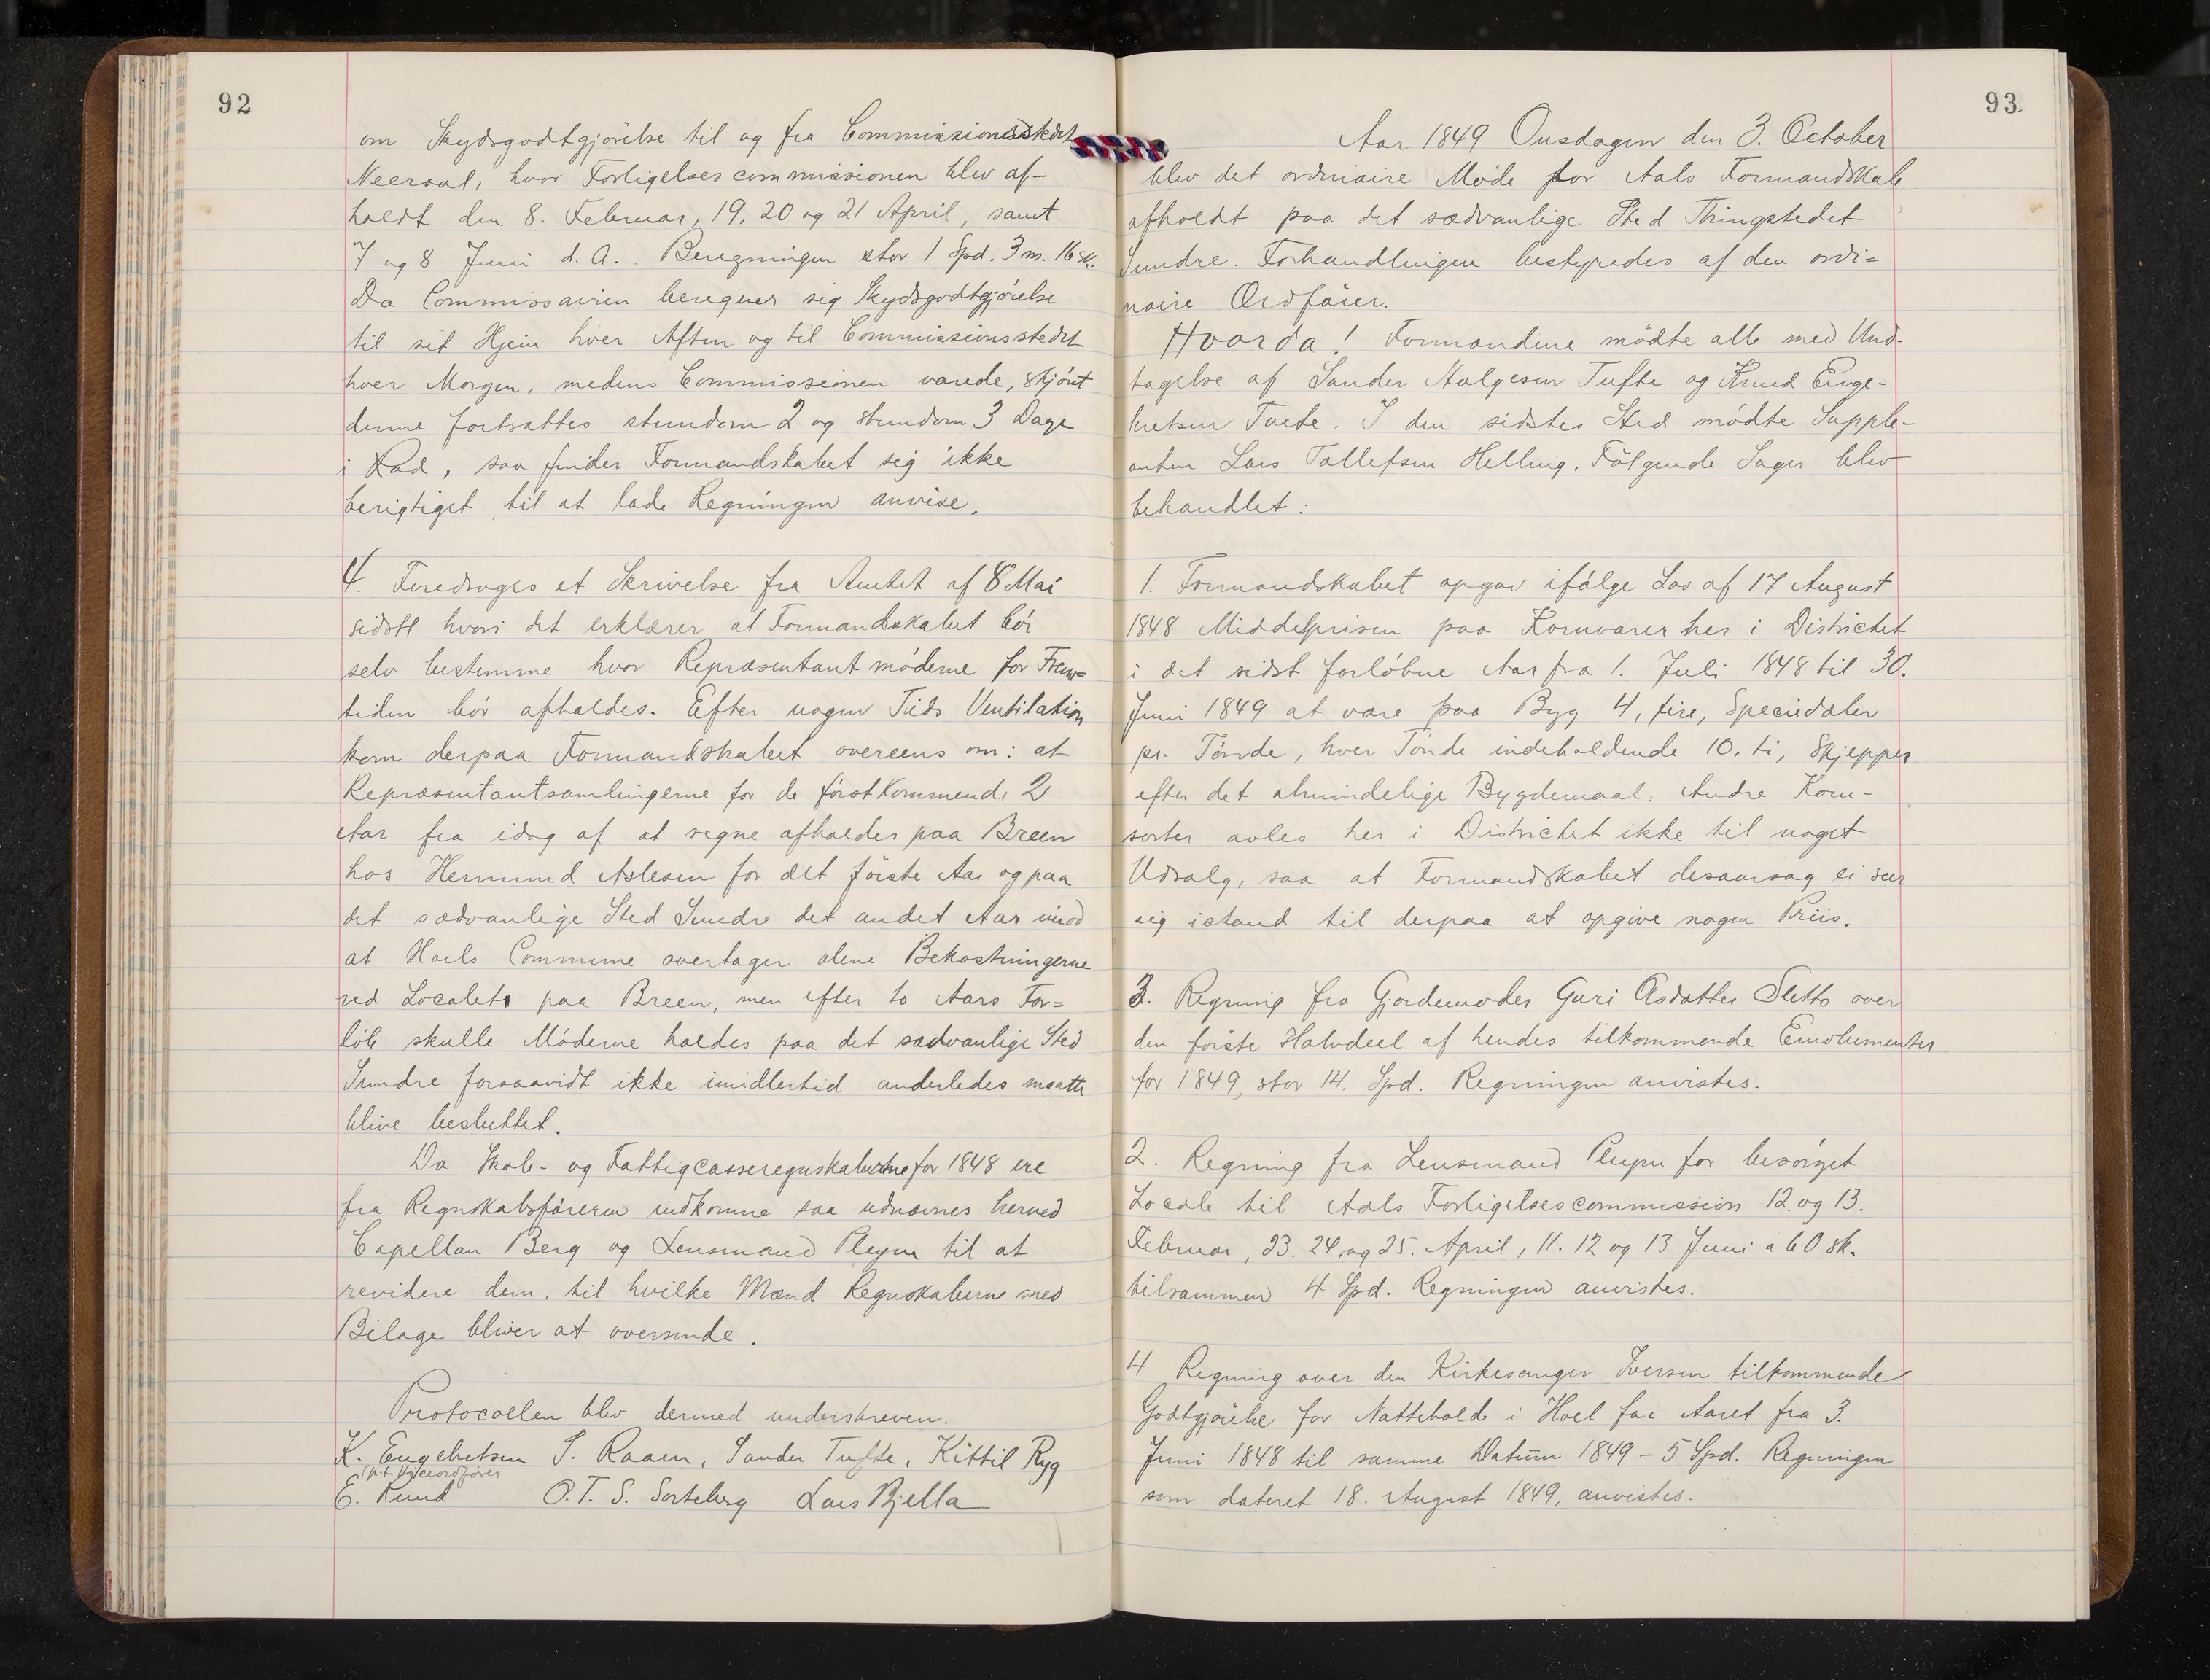 92
om Skydsgodtgjörelse til og fra Commissionsstedet
Neeraal, hvor Forligelsescommissionen blev af-
holdt den 8. Februar, 19. 20 og 21 April, samt
7 og 8 Juni d. A.. Beregningen stor 1 Spd. 3 m. 16 sk.
Da Commissairen beregner sig Skydsgodtgjörelse
til sit Hjem hver Aften og til Commissionsstedet
hver Morgen, medens Commissionen varede, skjönt
denne fortsattes stundom 2 og stundom 3 Dage
i Rad, saa finder Formandskabet sig ikke
berigtiget til at lade Regningen anvise.
4. Foredroges et Skrivelse fra Amtet af 8 Mai
sidstl. hvori det erklærer at Formandskabet bör
selv bestemme hvor Repræsentantmöderne for Frem-
tiden bör afholdes. Efter nogen Tids Ventilation
kom derpaa Formandskabet overeens om: at
Repræsentantsamlingerne for de förstkommende 2
Aar fra idag af at regne afholdes paa Breen
hos Hermund Aslesen for det förste Aar og paa
det sædvanlige Sted Sundre det andet Aar imod
at Hols Commune overtager alene Bekostningerne
ved Localet paa Breen, men efter to Aars For=
löb skulle Möderne holdes paa det sædvanlige Sted
Sundre forsaavidt ikke imidlertid anderledes maatte
blive besluttet.
Da Skole- og Fattigcasseregnskaberne for 1848 ere
fra Regnskabsföreren indkomne saa udnævnes herved
Capellan Berg og Lensmand Pleym til at
revidere dem, til hvilke Mænd Regnskaberne med
Bilage bliver at oversende.
Protocollen blev dermed underskreven.
K. Engebretsen S. Raaen, Sander Tufte, Kittil Ryg
(p.t. Viceordförer
E. Rund O.T.S. Sorteberg Lars Bjella
93
Aar 1849 Onsdagen den 3. October
blev det ordinaire Möde for Aals Formandskab
afholdt paa det sædvanlige Sted Thingstedet
Sundre. Forhandlingen bestyredes af den ordi=
naire Ordförer.
Hvorda! Formændene mödte alle med Und-
tagelse af Sander Halgesen Tufte og Knud Enge-
bretsen Tvete. I den sidstes Sted mödte Supple-
anten Lars Tollefsen Helling. Fölgende Sager blev
behandlet:
1. Formandskabet opgav ifölge Lov af 17 August
1848 Middelprisen paa Kornvarer her i Districhtet
i det sidst forlöbne Aar fra 1. Juli 1848 til 30.
Juni 1849 at vare paa Byg 4, fire, Speciedaler
pr. Tönde, hver Tönde indeholdende 10. ti, Skjepper
efter det almindelige Bygdemaal. Andre Korn-
sorter avles her i Districhtet ikke til noget
Udsalg, saa at Formandskabet desaarsag ei seer
sig istand til derpaa at opgive nogen Priis.
3. Regning fra Gjordemoder Guri Asdatter Sletto over
den förste Halvdeel af hendes tilkommende Emolumenter
for 1849, stor 14. Spd. Regningen anvistes.
2. Regning fra Lensmand Pleym for besörget
Locale til Aals Forligelsescommission 12. og 13.
Februar, 23. 24. og 25. April, 11. 12 og 13 Juni a 60 sk.
tilsammen 4 Spd. Regningen anvistes.
4 Regning over den Kirkesanger Iversen tilkommende
Godtgjörelse for Nattehold i Hol for Aaret fra 3.
Juni 1848 til samme Datum 1849 - 5 Spd. Regningen
som dateret 18. August 1849, anvistes.